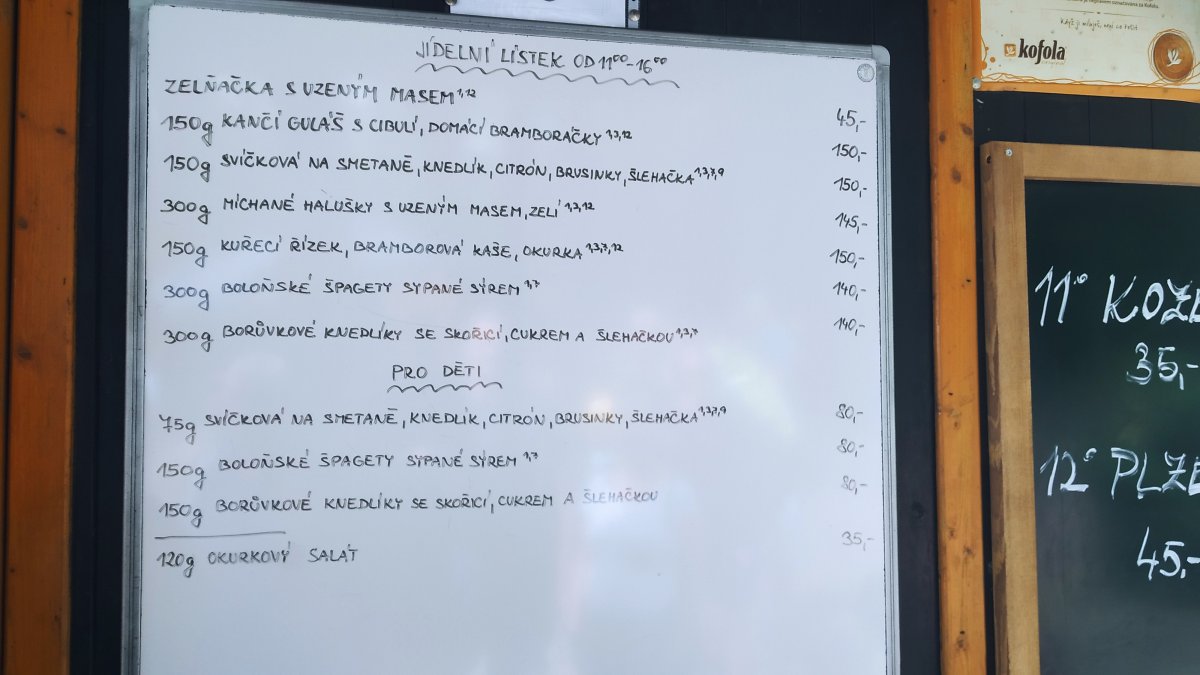 JÍDELNÍ LÍSTEK OD 11⁰⁰-16⁰⁰
ZELŇAČKA S UZENÝM MASEM 1,12 45,-
150g KANČÍ GULÁŠ S CIBULÍ, DOMÁCÍ BRAMBORÁČKY 1,3,12 150,-
150g SVÍČKOVÁ NA SMETANĚ, KNEDLÍK, CITRÓN, BRUSINKY, ŠLEHAČKA 1,3,7,9 150,-
300g MÍCHANÉ HALUŠKY S UZENÝM MASEM, ZELÍ 1,3,12 145,-
150g KUŘECÍ ŘÍZEK, BRAMBOROVÁ KAŠE, OKURKA 1,3,7,12 150,-
300g BOLOŇSKÉ ŠPAGETY SYPANÉ SÝREM 1,7 140,-
300g BORŮVKOVÉ KNEDLÍKY SE SKOŘICÍ, CUKREM A ŠLEHAČKOU 1,3,7 140,-
PRO DĚTI
75g SVÍČKOVÁ NA SMETANĚ, KNEDLÍK, CITRÓN, BRUSINKY, ŠLEHAČKA 1,3,7,9 80,-
150g BOLOŇSKÉ ŠPAGETY SYPANÉ SÝREM 1,7 80,-
150g BORŮVKOVÉ KNEDLÍKY SE SKOŘICÍ, CUKREM A ŠLEHAČKOU 80,-
120g OKURKOVÝ SALÁT 35,-
Když ji miluješ, není co řešit
kofola
11° KOZ
35,-
12° PLZE
45,-